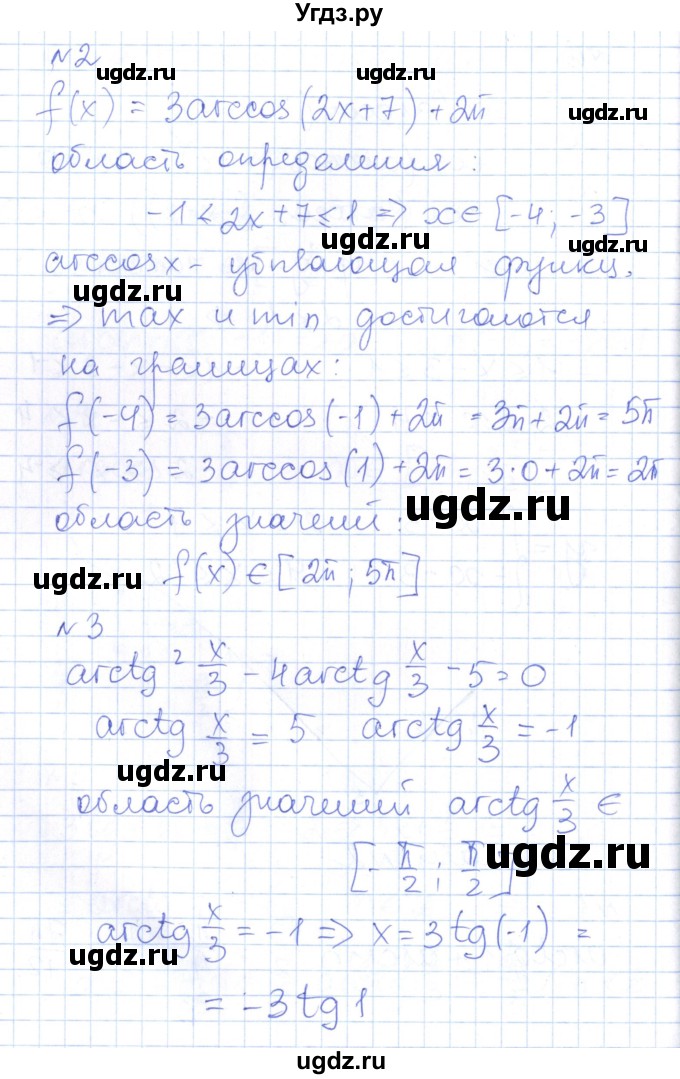 Угдз.ру
№2
ugdz.ru ugdz.ru
f(x) = 3arccos(2x+7)+2π ugdz.ru
область определения:
-1 ≤ 2x+7 ≤ 1 => x ∈ [-4; -3]
ugdz.ru ugdz.ru
arccosx - убывающая функц.
ugdz.ru
=> max и min достигаются
на границах:
f(-4) = 3arccos(-1)+2π = 3π+2π = 5π
f(-3) = 3arccos(1)+2π = 3·0+2π = 2π
ugdz.ru
область значений:
ugdz.ru f(x) ∈ [2π; 5π]
№3
arctg² x/3 - 4arctg x/3 - 5 = 0
ugdz.ru ugdz.ru
arctg x/3 = 5 arctg x/3 = -1
ugdz.ru
область значений arctg x/3 ∈
[-π/2; π/2]
ugdz.ru
arctg x/3 = -1 => x = 3tg(-1) =
ugdz.ru
= -3tg1
ugdz.ru